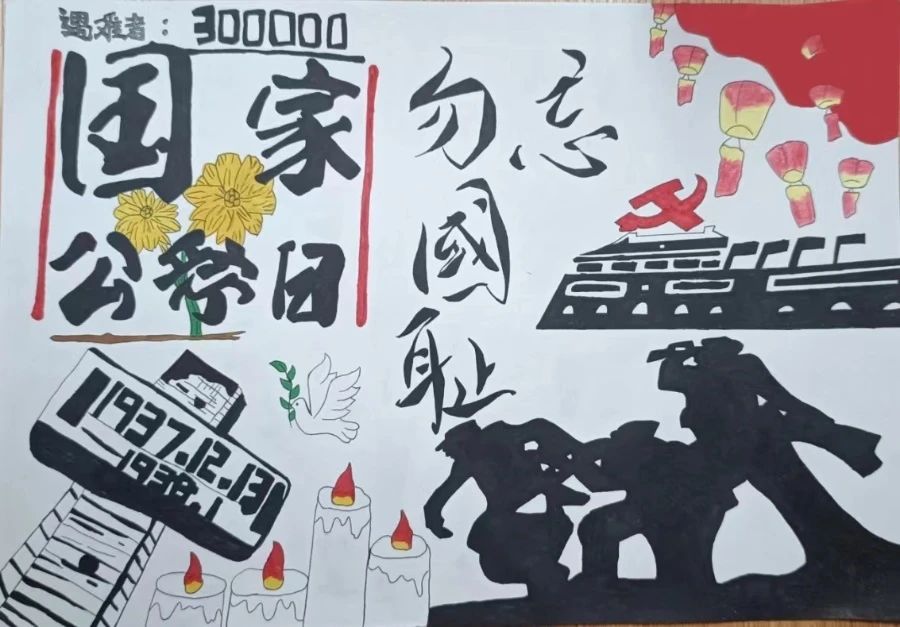 遇难者：300000
国家
公祭日
勿忘
國
耻
1937.12.13
1938.1